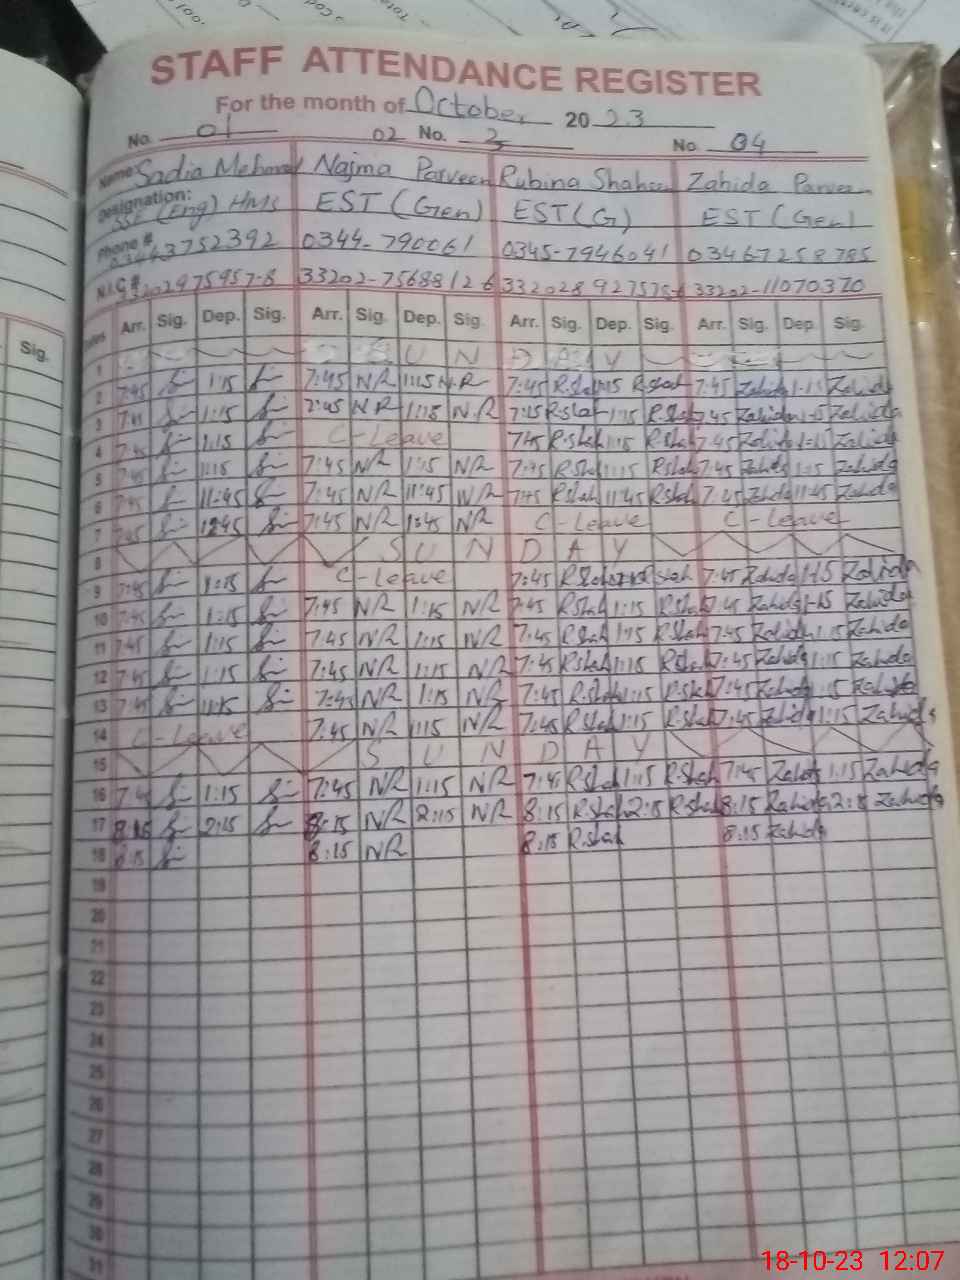 STAFF ATTENDANCE REGISTER
For the month of October 2023
No. 01 02 No. 3 No. 04
Name: Sadia Mehmood Najma Parveen Rubina Shaheen Zahida Parveen
Designation: SSE (Eng) HMS EST (Gen) EST (G) EST (Gen)
Phone # 0344-790061 0345-7946041 03467258785
N.I.C # 33202-75688126 33202-11070370
Dates Arr. Sig. Dep. Sig. Arr. Sig. Dep. Sig. Arr. Sig. Dep. Sig. Arr. Sig. Dep. Sig.
1 SUNDAY
2 7:45 1:15 7:45 NR 1:15 N.R 7:45 R.shah 1:15 R.shah 7:45 Zahida 1:15 Zahida
3 1:15 7:45 N.R 1:15 N.R R.shah 1:15 R.shah 7:45 Zahida Zahida
4 7:45 1:15 C-Leave 7:45 R.shah 1:15 R.shah 7:45 Zahida 1:15 Zahida
5 7:45 1:15 7:45 NR 1:15 NR 7:45 R.shah 1:15 R.shah 7:45 Zahida 1:15 Zahida
6 7:45 11:45 7:45 NR 11:45 NR 7:45 R.shah 11:45 R.shah 7:45 Zahida 11:45 Zahida
7 7:45 7:45 NR NR C-Leave C-Leave
8 SUNDAY
9 7:45 1:15 C-Leave 7:45 R.shah R.shah 7:45 Zahida 1:15 Zahida
10 7:45 1:15 7:45 NR 1:15 NR 7:45 R.shah 1:15 R.shah 7:45 Zahida 1:15 Zahida
11 7:45 1:15 7:45 NR 1:15 NR 7:45 R.shah 1:15 R.shah 7:45 Zahida 1:15 Zahida
12 7:45 1:15 7:45 NR 1:15 NR 7:45 R.shah 1:15 R.shah 7:45 Zahida 1:15 Zahida
13 7:45 1:15 7:45 NR 1:15 NR 7:45 R.shah 1:15 R.shah 7:45 Zahida 1:15 Zahida
14 C-Leave 7:45 NR 1:15 N/R 7:45 R.shah 1:15 R.shah 7:45 Zahida 1:15 Zahida
15 SUNDAY
16 7:45 1:15 7:45 NR 1:15 NR 7:45 R.shah 1:15 R.shah 7:45 Zahida 1:15 Zahida
17 8:15 2:15 8:15 NR 2:15 NR 8:15 R.shah 2:15 R.shah 8:15 Zahida 2:15 Zahida
18 8:15 8:15 NR 8:15 R.shah 8:15 Zahida
19
20
21
22
23
24
25
26
27
28
29
30
31
Sig.
18-10-23 12:07